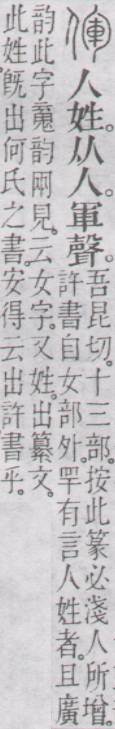 人姓。从人。軍聲。
吾昆切。十三部。按此篆必淺人所增。
許書自女部外。罕有言人姓者。且廣
韵此字䰟韵兩見。云女字。又姓。出纂文。
此姓旣出何氏之書。安得云出許書乎。